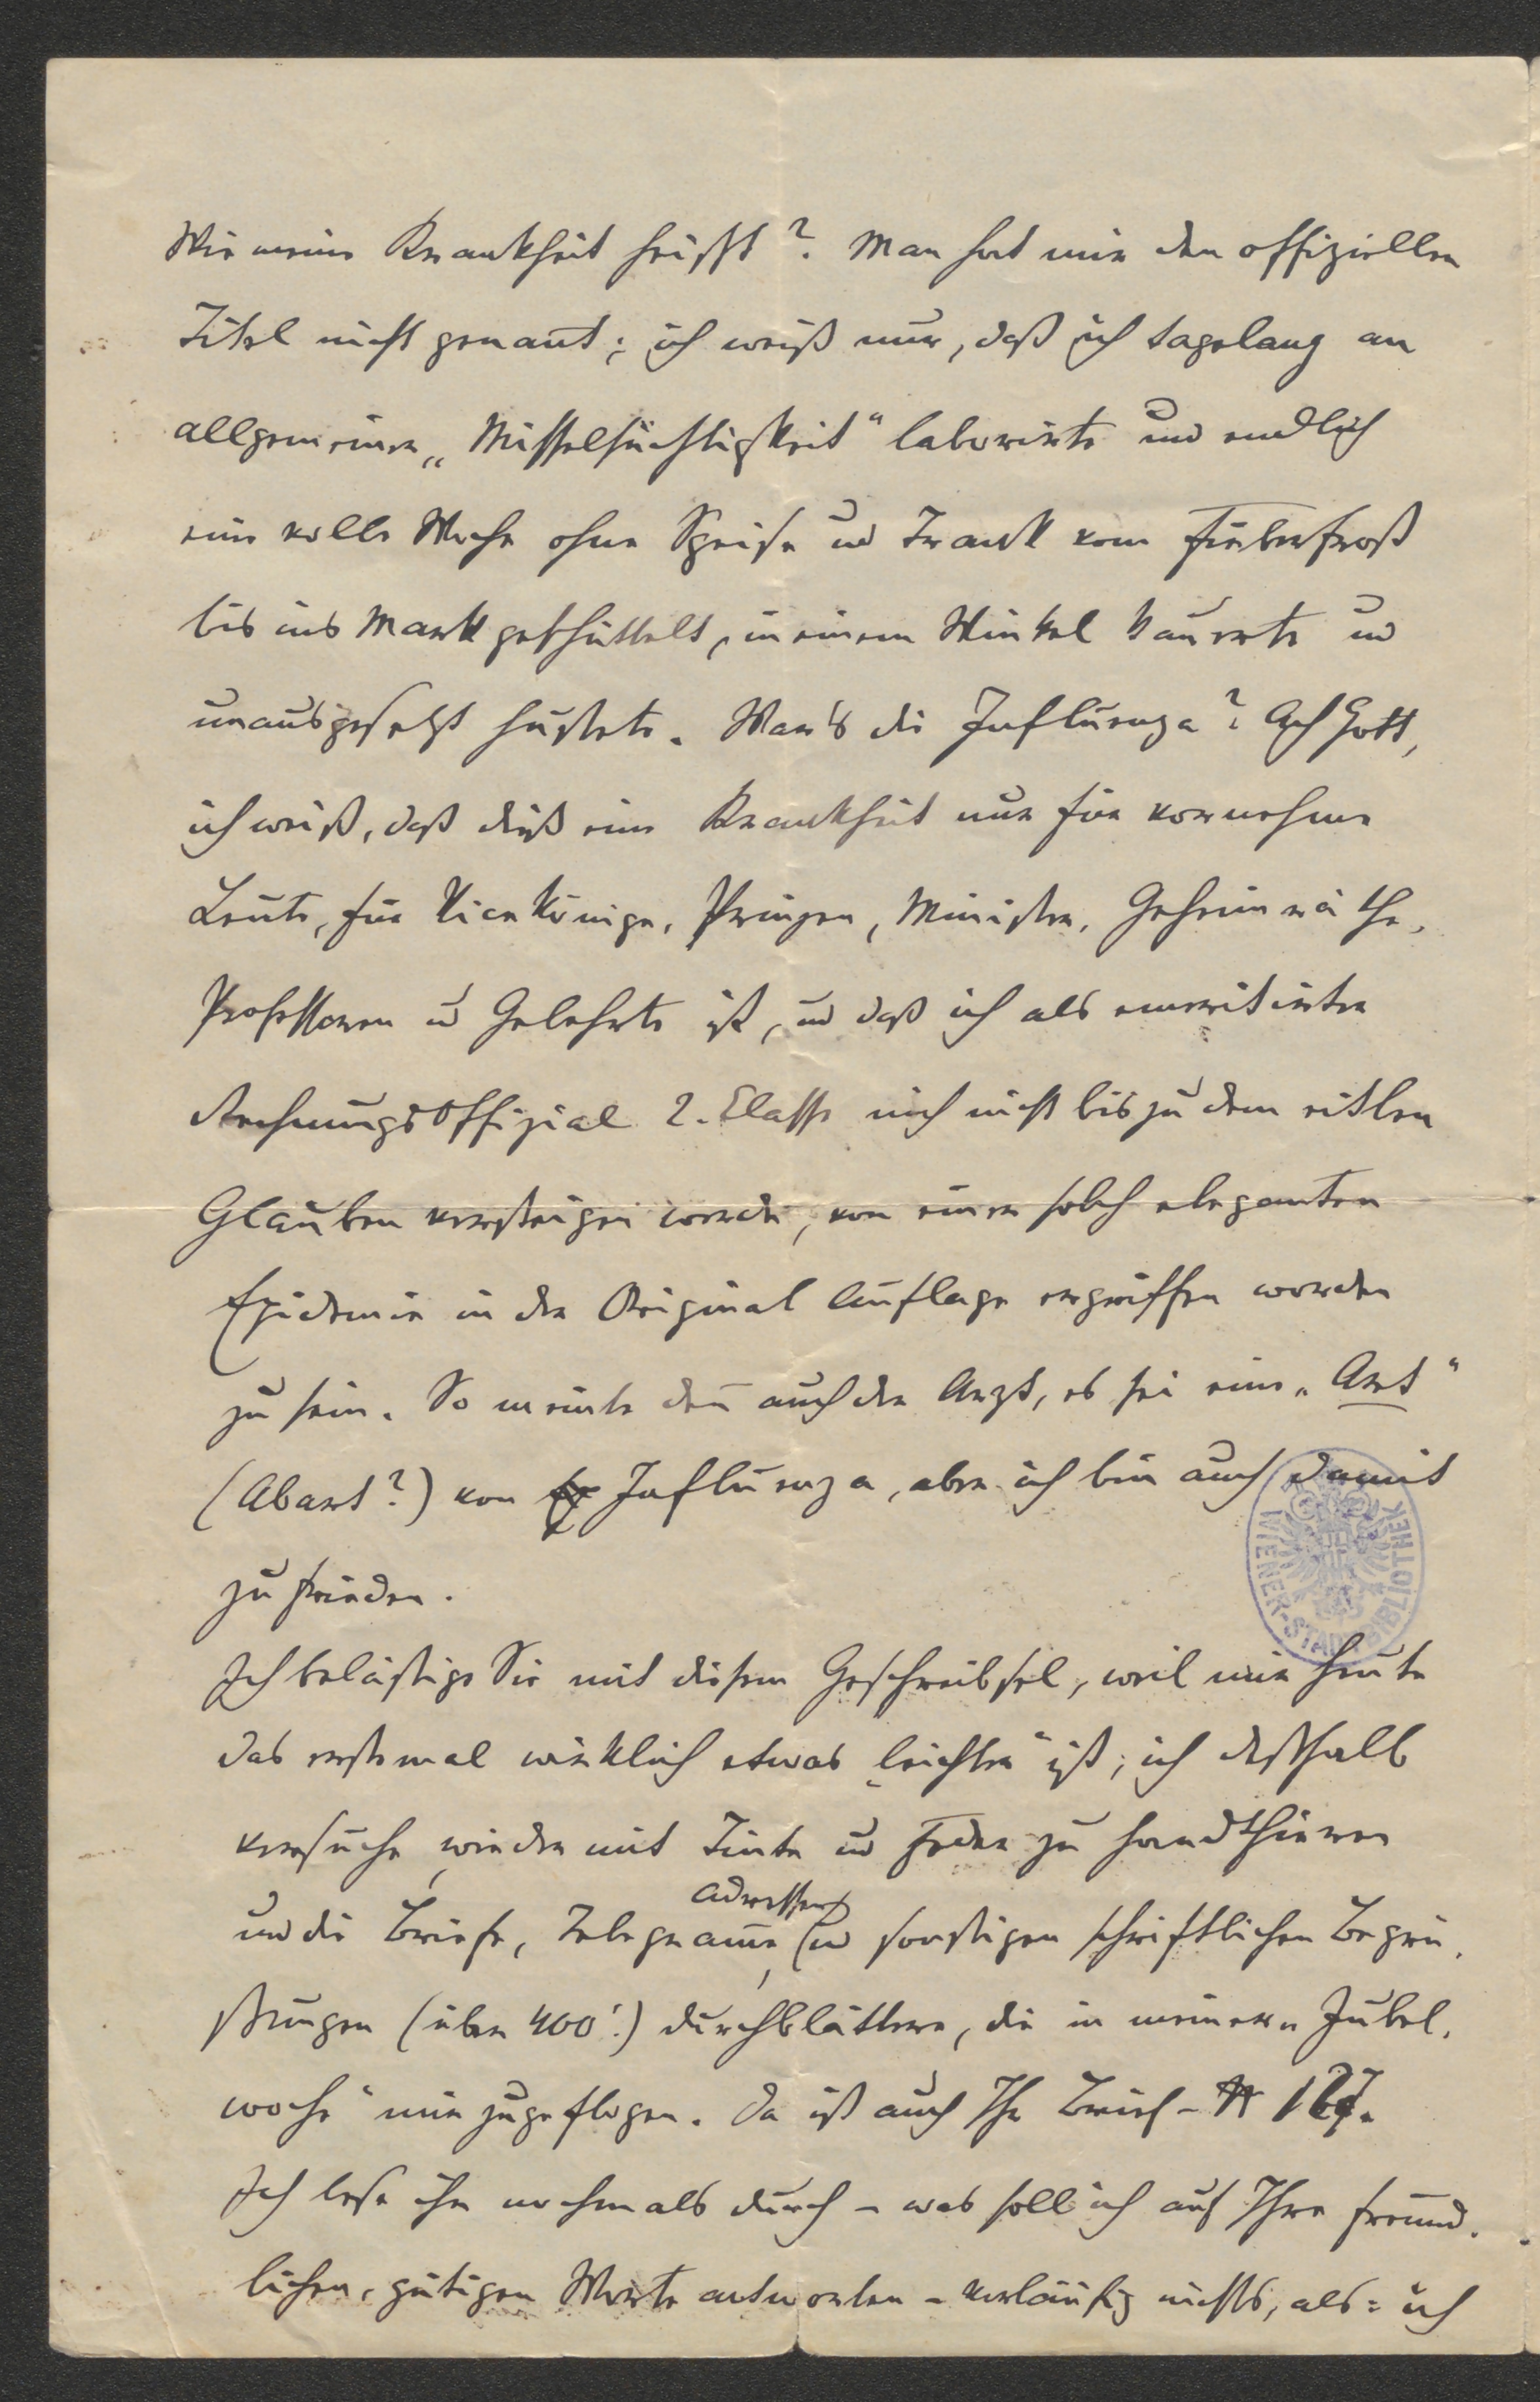 Wie meine Krankheit heißt? Man hat mir den offiziellen
Titel nicht genan̄t; ich weiß nur, daß ich tagelang an
allgemeiner „Misselsüchtigkeit“ laborirte und endlich
eine volle Woche ohne Speise und Trank vom Fieberfrost
bis ins Mark geschüttelt, in einem Winkel kauerte und
unausgesetzt hustete. War's die Influenza? Ach Gott,
ich weiß, daß dieß eine Krankheit nur für vornehme
Leute, für Vicekönige, Prinzen, Minister, Geheimräthe,
Professoren u Gelehrte ist, und daß ich als emeritirter
Rechnungsoffizial 2. Classe mich nicht bis zu dem eitlen
Glauben versteigen werde, von einer solch eleganten
Epidemie in der Original Auflage ergriffen worden
zu sein. So meinte den̄ auch der Arzt, es sei eine „Art“
(Abart?) von Influenza, aber ich bin auch damit
zufrieden.
Ich belästige Sie mit diesem Geschreibsel, weil mir heute
das erstemal wirklich etwas „leichter“ ist; ich deßhalb
versuche, wieder mit Tinte und Feder zu handthieren
und die Briefe, Telegram̄e, Adressen und sonstigen schriftlichen Begrü-
ßungen (über 400!) durchblättere, die in meiner „Jubel-
woche“ mir zugeflogen. Da ist auch Ihr Brief – N 127.
Ich lese ihn nochmals durch – was soll ich auf Ihre freund-
lichen, gütigen Worte antworten – vorläufig nichts, als: ich
WIENER-STADTBIBLIOTHEK